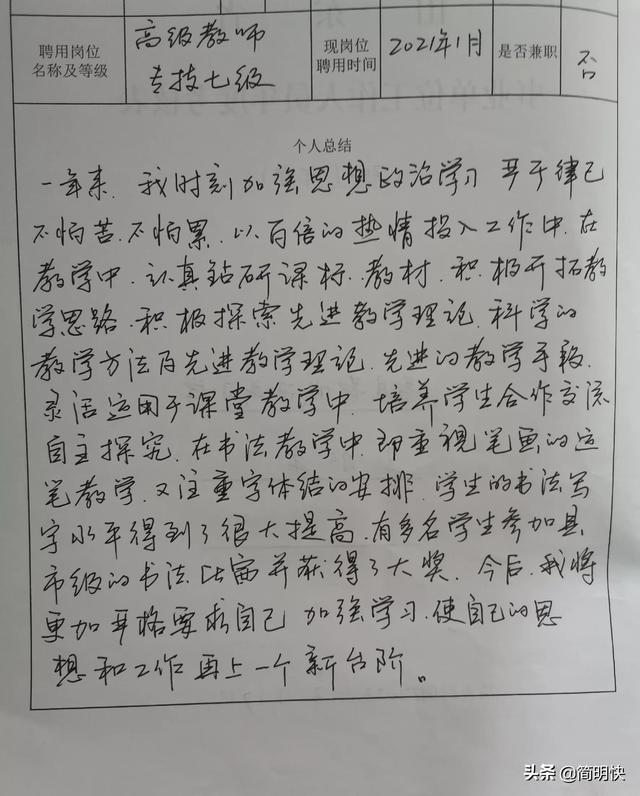 聘用岗位
名称及等级
高级教师
专技七级
现岗位
聘用时间
2021年1月
是否兼职
否
个人总结
一年来，我时刻加强思想政治学习 严于律己
不怕苦、不怕累，以百倍的热情投入工作中，在
教学中，认真钻研课标、教材，积极开拓教
学思路，积极探索先进教学理论，科学的
教学方法及先进教学理论，先进的教学手段，
灵活运用于课堂教学中，培养学生合作交流
自主探究，在书法教学中，即重视笔画的运
笔教学，又注重字体结的安排，学生的书法写
字水平得到了很大提高，有多名学生参加县、
市级的书法比赛并获得了大奖，今后，我将
更加严格要求自己 加强学习，使自己的思
想和工作再上一个新台阶。
头条 @简明快